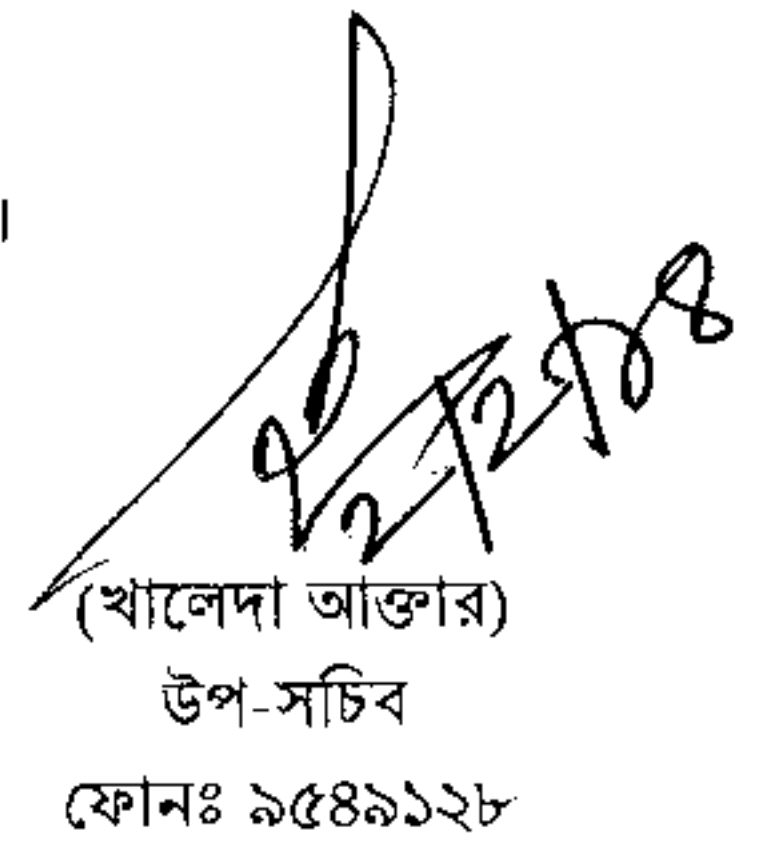 ।
২/২/১৪
(খালেদা আক্তার)
উপ-সচিব
ফোনঃ ৯৫৪৯১২৮